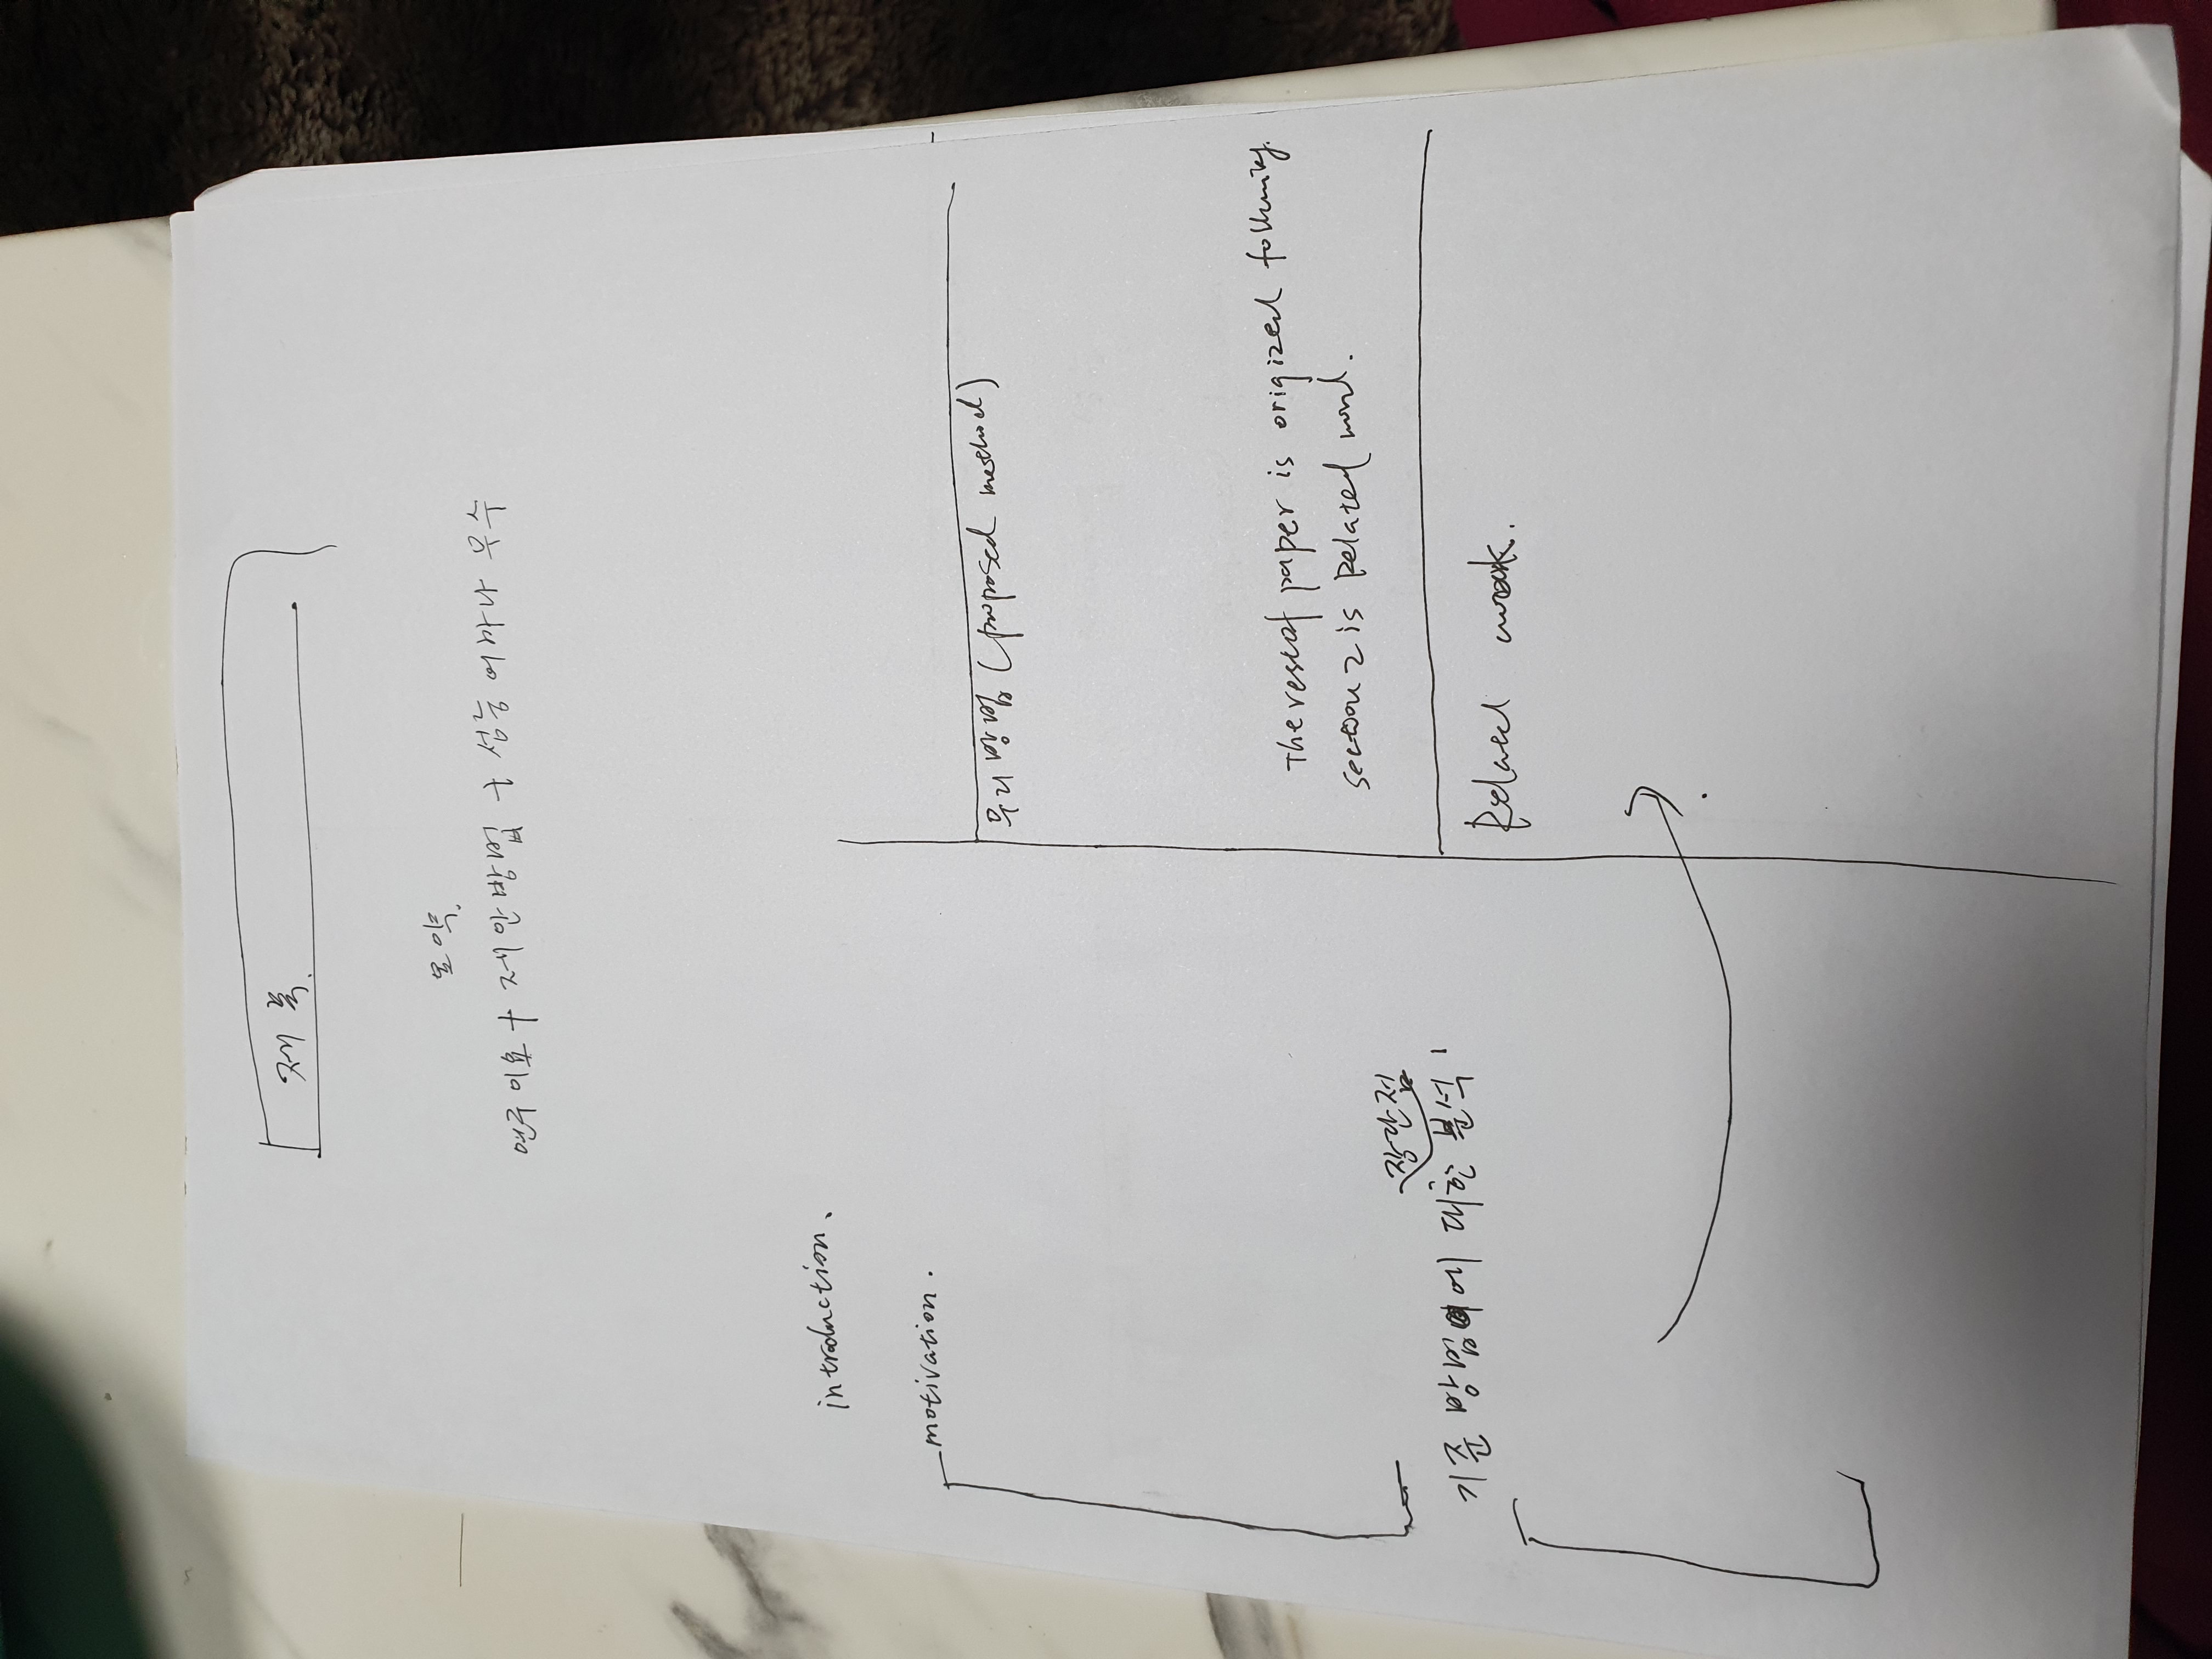 제목.
요약.
연구이유 + 제안방법 + 성능 얼마나 우수
introduction.
motivation.
장단점
기준 방법에 대한 분석
우리 방법 (proposed method)
The rest of paper is origized following.
section 2 is Related
Related work.